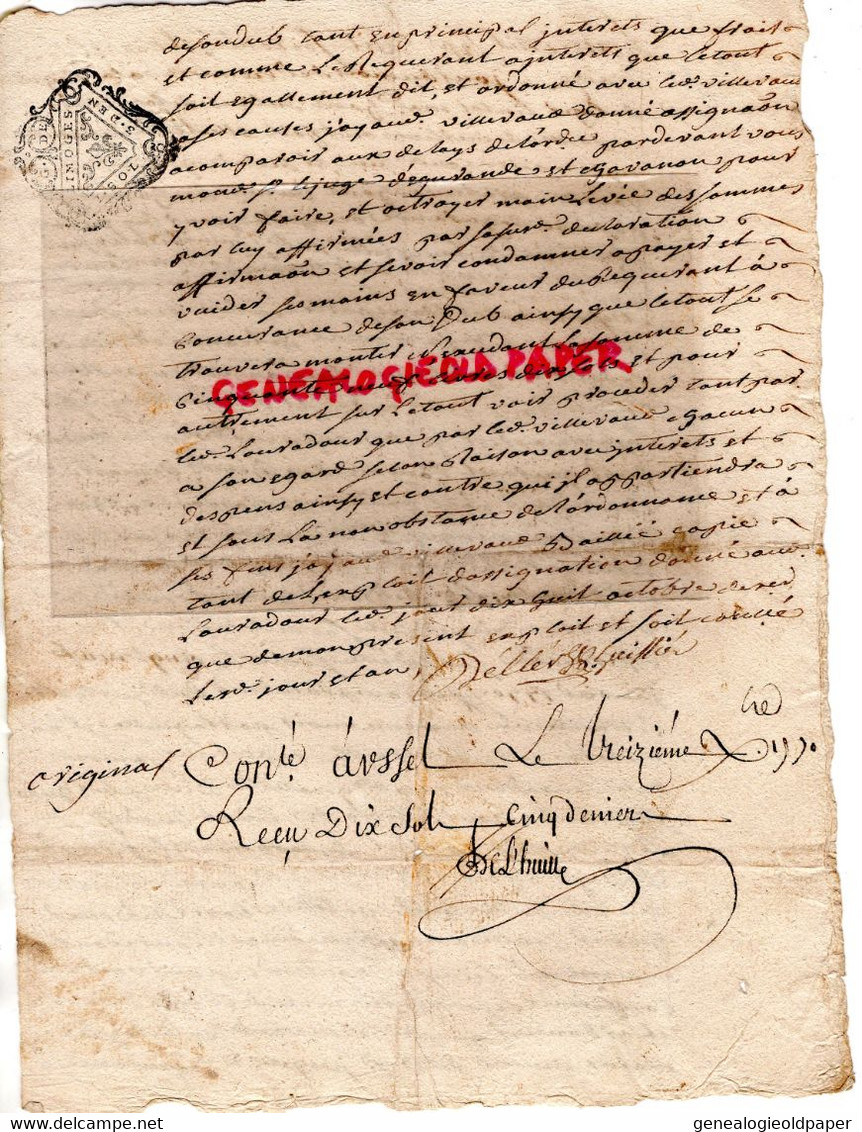 desondub tant en principal jnterets que frais
et comme Le Requerant a jnterets que le tout
soit egallement dit, et ordonné avec led. villevaud
a ses causes j'ay aud. villevaud donné assignaon
a comparoir aux delays de l'ord.e pardevant vous
mond. Sr Lejuge degurande et chavanon pour
y voir faire, et octroyer main Levée des sommes
par luy affirmées par sasusd. declaration
affirmaon et sevoir condamner a payer et
vuider ses mains en faveur du Requerant à
Concurance deson Dub ainsy que le tout se
trouvera monter la somme de
Cinquante et pour
autrement sur Le tout voir proceder tant par
led. Louradour que par led. villevaud chacun
a son egard selon Raison avec jnterets et
despens ainsy et contre qui jl appartiendra
et sans La non obstance de l'ordonnance et à
ses fins j'ay aud. villevaud Baillié copie
tant de L'exploit d'assignation donné aud.
Louradour led. jour dix huit octobre dernier
que de mon present exploit et soit conllé
Lesd. jour et an,
huissier
original Con.lé à ussel Le treiziéme X.bre 1770
Reçu Dix Sols cinq denier
Delhuille
G. DE
LIMOGES
3. DEN
SOL
GENEALOGIEOLD PAPER
delcampe.net
genealogieoldpaper